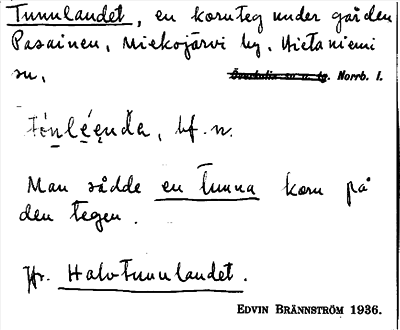 Tunnlandet, en kornteg under gården
Pasainen, Niekojärvi by, Hietaniemi
sn, Överkalix sn o. tg. Norrb. l.
tón̲lé̲e̲nda, bf. n.
Man sådde en tunna korn på
den tegen.
Jfr. Halvtunnlandet.
EDVIN BRÄNNSTRÖM 1936.